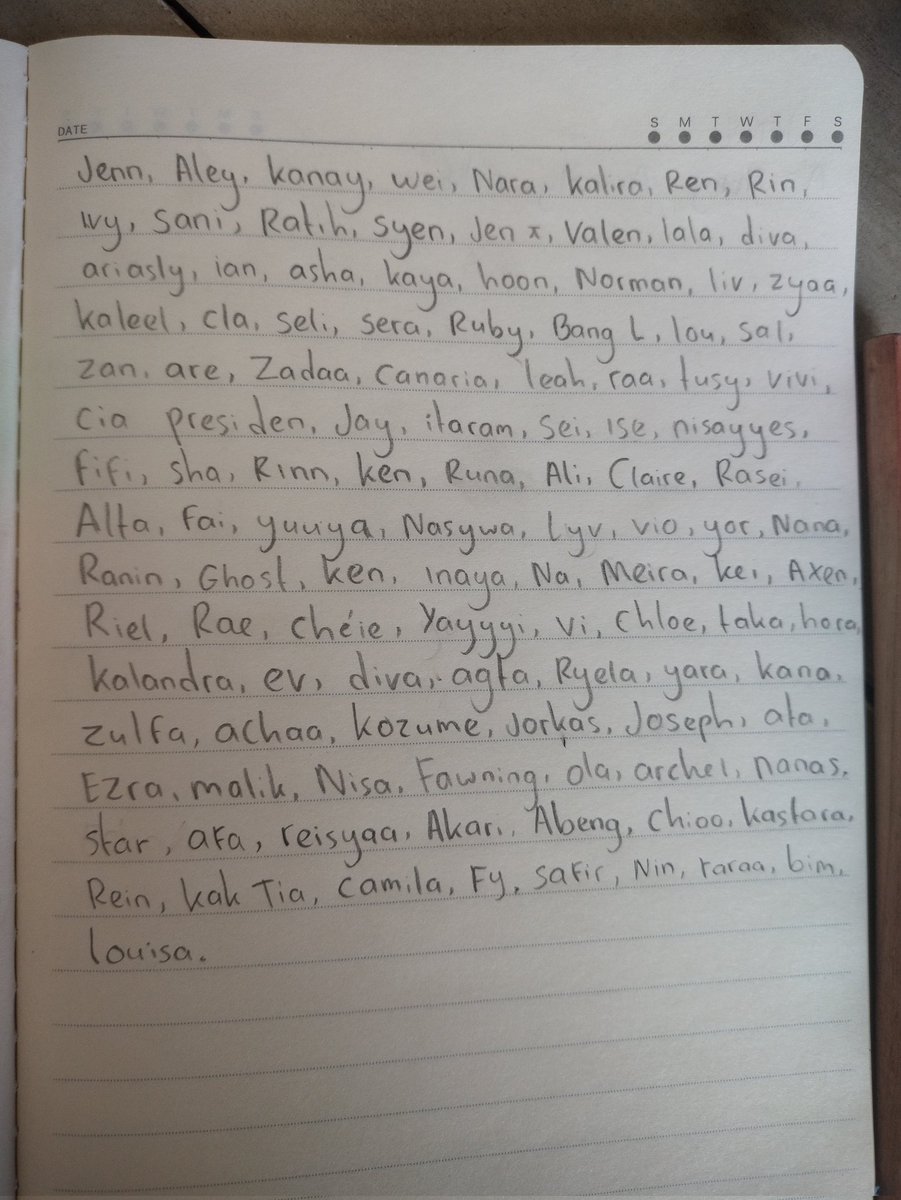 DATE
S M T W T F S
Jenn, Aley, kanay, wei, Nara, kalira, Ren, Rin,
ivy, sani, Ratih, syen, Jen x, Valen, lala, diva,
ariasly, ian, asha, kaya, hoon, Norman, liv, zyaa,
kaleel, cla, seli, sera, Ruby, Bang L, lou, sal,
zan, are, Zadaa, canaria, leah, raa, tusy, vivi,
cia presiden, Jay, itaram, sei, ise, nisayyes,
fifi, sha, Rinn, ken, Runa, Ali, Claire, Rasei,
Alta, Fai, yuuya, Nasywa, Lyv, vio, yor, Nana,
Ranin, Ghost, ken, inaya, Na, Meira, kei, Axen,
Riel, Rae, chéie, Yayyyi, vi, chloe, taka, hora,
kalandra, ev, diva, agta, Ryela, yara, kana,
zulfa, achaa, kozume, Jorkas, Joseph, ata,
Ezra, malik, Nisa, Fawning, ola, archel, nanas,
star, afa, reisyaa, Akari, Abeng, chioo, kastara,
Rein, kak Tia, camila, Fy, safir, Nin, raraa, bim,
louisa.